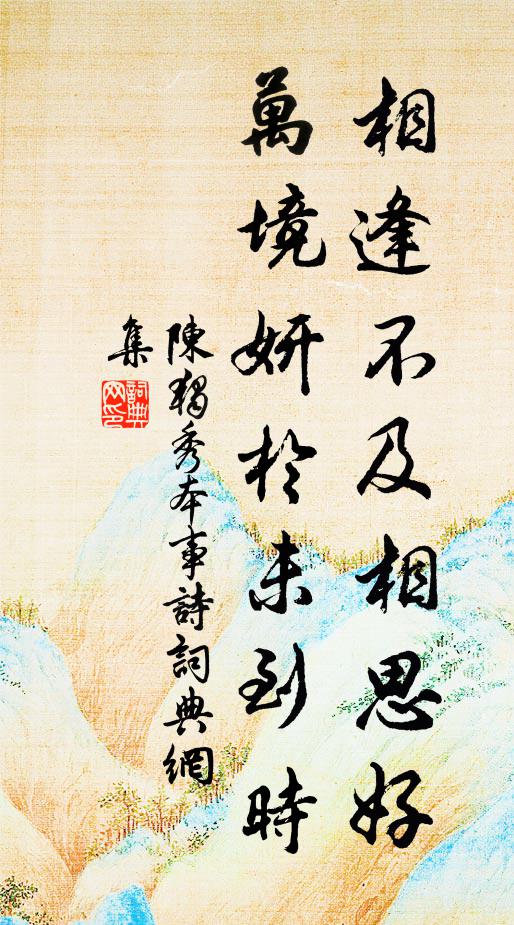 相逢不及相思好
萬境妍於未到時
陳獨秀本事詩詞典網
集
詞典網印